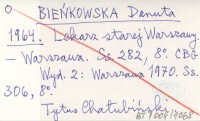 BIEŃKOWSKA Danuta
1964. Lekarz starej Warszawy.
– Warszawa. Ss. 282, 8°. CBG
Wyd. 2: Warszawa 1970. Ss.
306, 8°.
Tytus Chałubiński